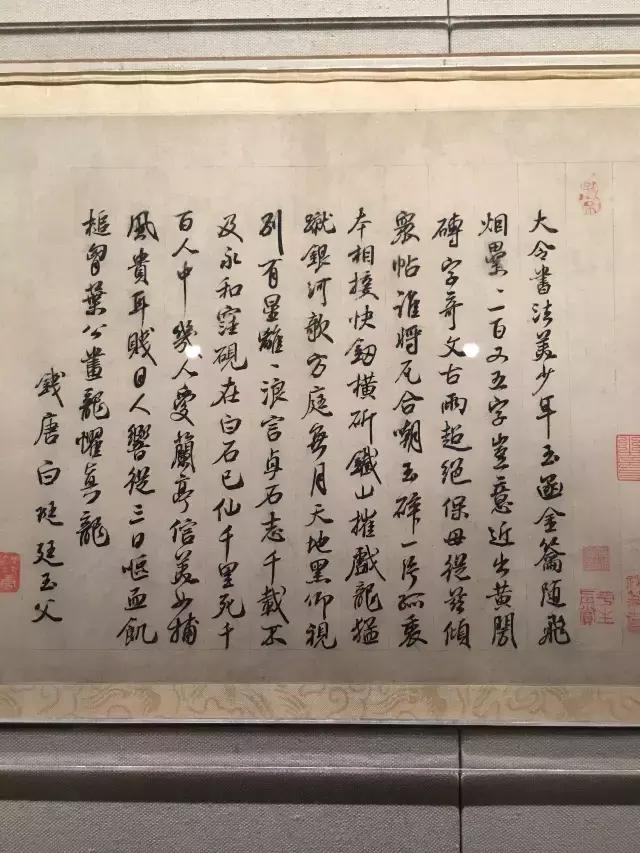 大令書法美少年玉函金籥随飛
烟壘〻一百又五字豈意近出黄閍
磚字奇文古兩超絕保母從茲傾
衆帖誰將瓦合嘲玉碎一片
本相接快劔橫斫鐵山摧戲龍猛
蹴銀河欹方庭無月天地黑仰視
列百星離〻浪言貞石志千載不
及永和窪硯在白石已仙千里死千
百人中幾人愛蘭亭信美如捕
風貴耳賤目人響從三日嘔血飢
槌胷葉公畫龍懼真龍
錢唐白珽廷玉父